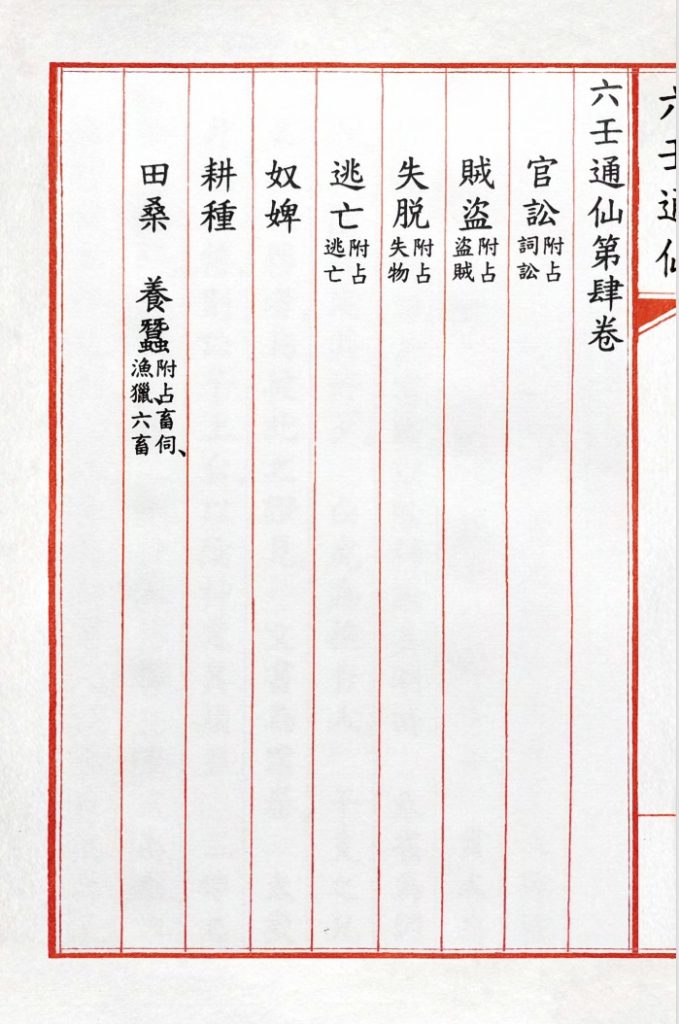 六壬通仙
六壬通仙第肆卷
官訟附占詞訟
賊盜附占盜賊
失脱附占失物
逃亡附占逃亡
奴婢
耕種
田桑 養蠶附占畜伺、漁獵、六畜